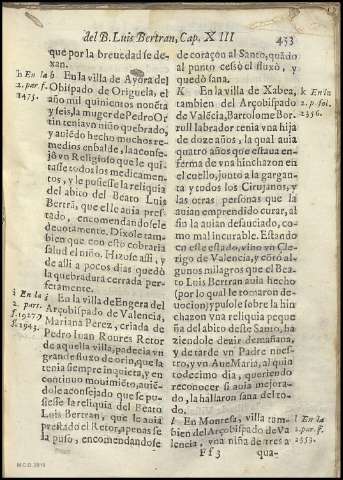 del B. Luis Bertran, Cap. XIII
433
que por la breuedad se de-
xan.
h En la
2. par. f.
2475.
b En la villa de Ayora del
Obispado de Origuela, el
año mil quinientos nouēta
y seis, la muger de Pedro Or
tin tenia vn niño quebrado,
y auiēdo hecho muchos re-
medios en balde, la aconse-
jò vn Religioso que le qui-
tasse todos los medicamen-
tos, y le pusiesse la reliquia
del abito del Beato Luis
Bertrā, que el le auia pres-
tado, encomendandosele
deuotamente. Dixole tam-
bien que con esto cobraria
salud el niño. Hizose assi, y
de alli a pocos dias quedò
la quebradura cerrada per-
fetamente.
i En la
2. part.
f. 1927 y
f. 1943.
i En la villa de Engera del
Arçobispado de Valencia,
Mariana Perez, criada de
Pedro Iuan Roures Retor
de aquella villa, padecia vn
grande fluxo de orin, que la
tenia siempre inquieta, y en
continuo mouimiēto, auiē-
dole aconsejado que se pu-
siesse la reliquia del Beato
Luis Bertran, que le auia
prestado el Retor, apenas se
la puso, encomendandose
de coraçon al Santo, quādo
al punto cessò el fluxò, y
quedò sana.
K En la villa de Xabea,
tambien del Arçobispado
de Valécia, Bartolome Bor-
rull labrador tenia vna hija
de doze años, la qual auia
quatro años que estaua en-
ferma de vna hinchazon en
el cuello, junto a la gargan-
ta y todos los Cirujanos, y
las otras personas que la
auian emprendido curar, al
fin la auian desauciado, co-
mo mal incurable. Estando
en este estado, vino vn Cle-
rigo de Valencia, y cōtò al-
gunos milagros que el Bea-
to Luis Bertran auia hecho
(por lo qual le tomaron de-
uocion) y pusole sobre la hin
chazon vna reliquia peque
ña del abito deste Santo, ha
ziendole dezir de mañana,
y de tarde vn Padre nues-
tro, y vn Aue Maria, al quin
to dezimo dia, queriendo
reconocer si auia mejora-
do, la hallaron sana del to-
do.
k En la
2. p. fol.
2356.
l En Montesa, villa tam-
bien del Arçobispado de Va
lencia, vna niña de tres a
l En la
2. par. f.
2553.
Ff 3
qua-
M.C.D. 2019